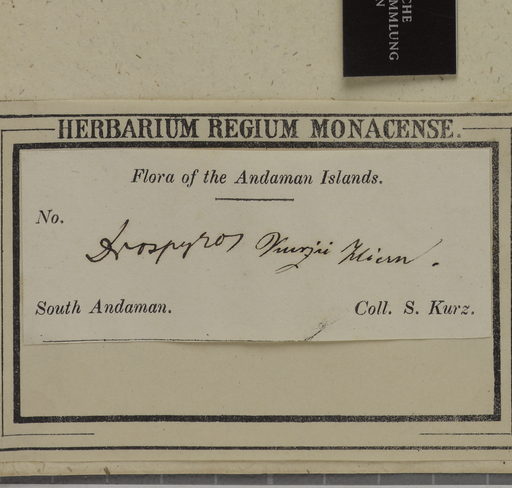 CHE
MMLUNG
N
HERBARIUM REGIUM MONACENSE.
Flora of the Andaman Islands.
No.
Diospyros Kurzii Hiern.
South Andaman.
Coll. S. Kurz.